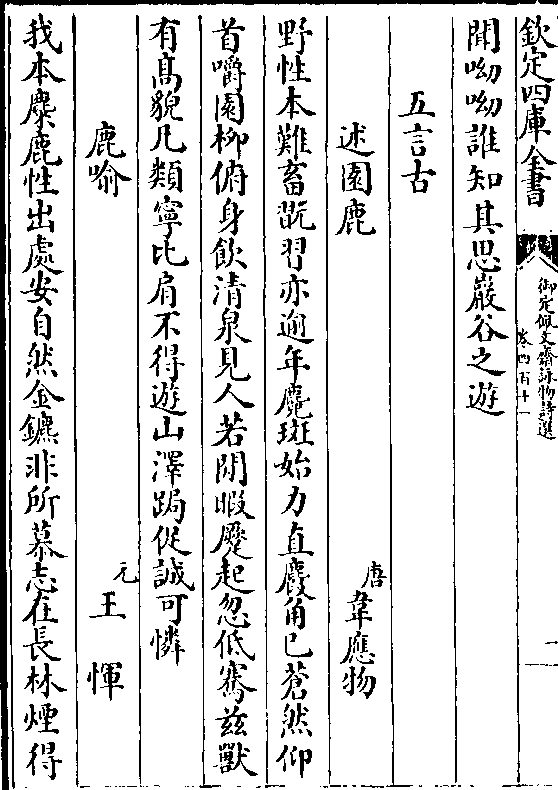 欽定四庫全書
御定佩文齋詠物詩選
卷四百十一
一
聞呦呦誰知其思巖谷之遊
五言古
述園鹿
唐韋應物
野性本難畜翫習亦逾年麑班始力直麚角已蒼然仰
首嚼園柳俯身飲清泉見人若閒暇蹷起忽低騫茲獸
有高貌凡類寧比肩不得遊山澤跼促誠可憐
鹿喻
元王惲
我本麋鹿性出處安自然金鑣非所慕志在長林煙得